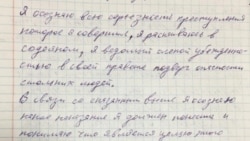 Я осознаю всю серьезность преступления
которое я совершил, я раскаиваюсь в
содеяном, я ведомый слепой убежденно-
стью в своей правоте подверг опасности
стольких людей.
В связи со сказанным выше я осознаю
какие последствия я должен понести и
понимаю что является целью этого